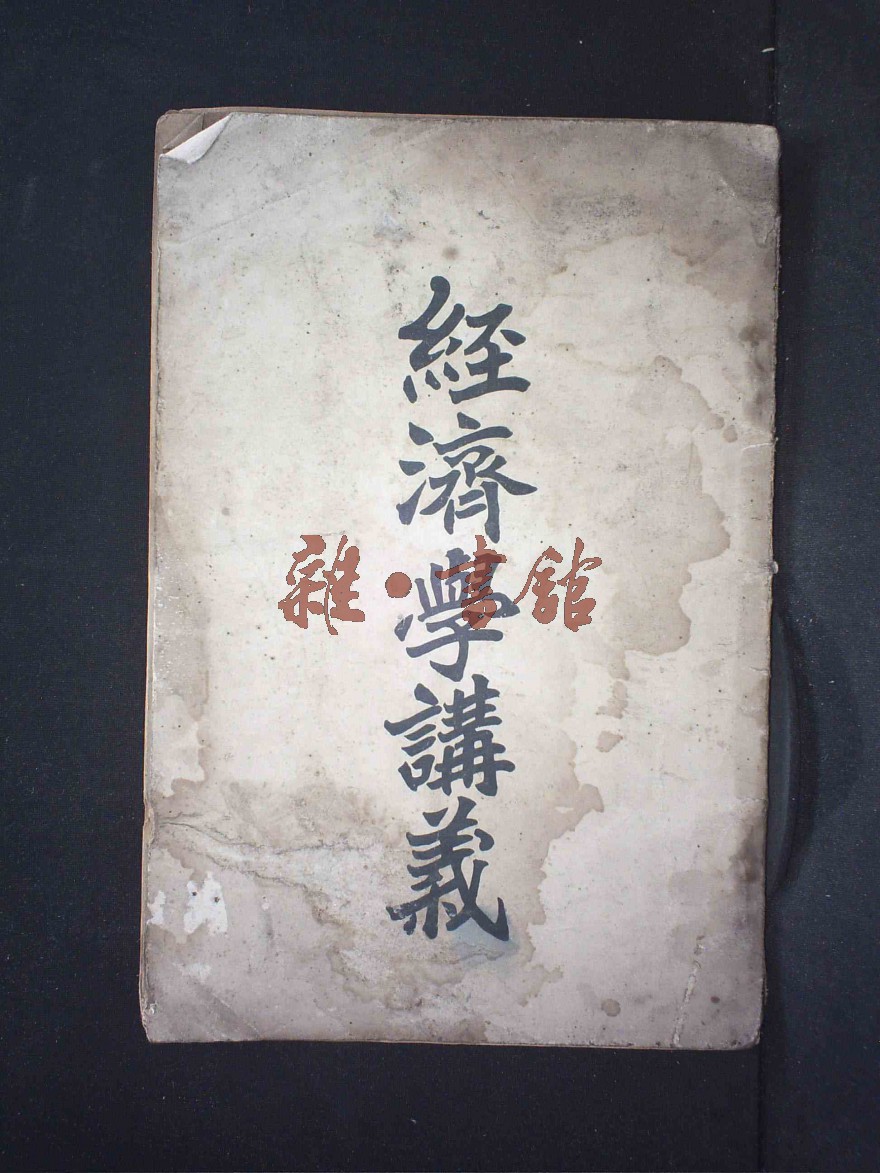 經濟學講義
雜·書館